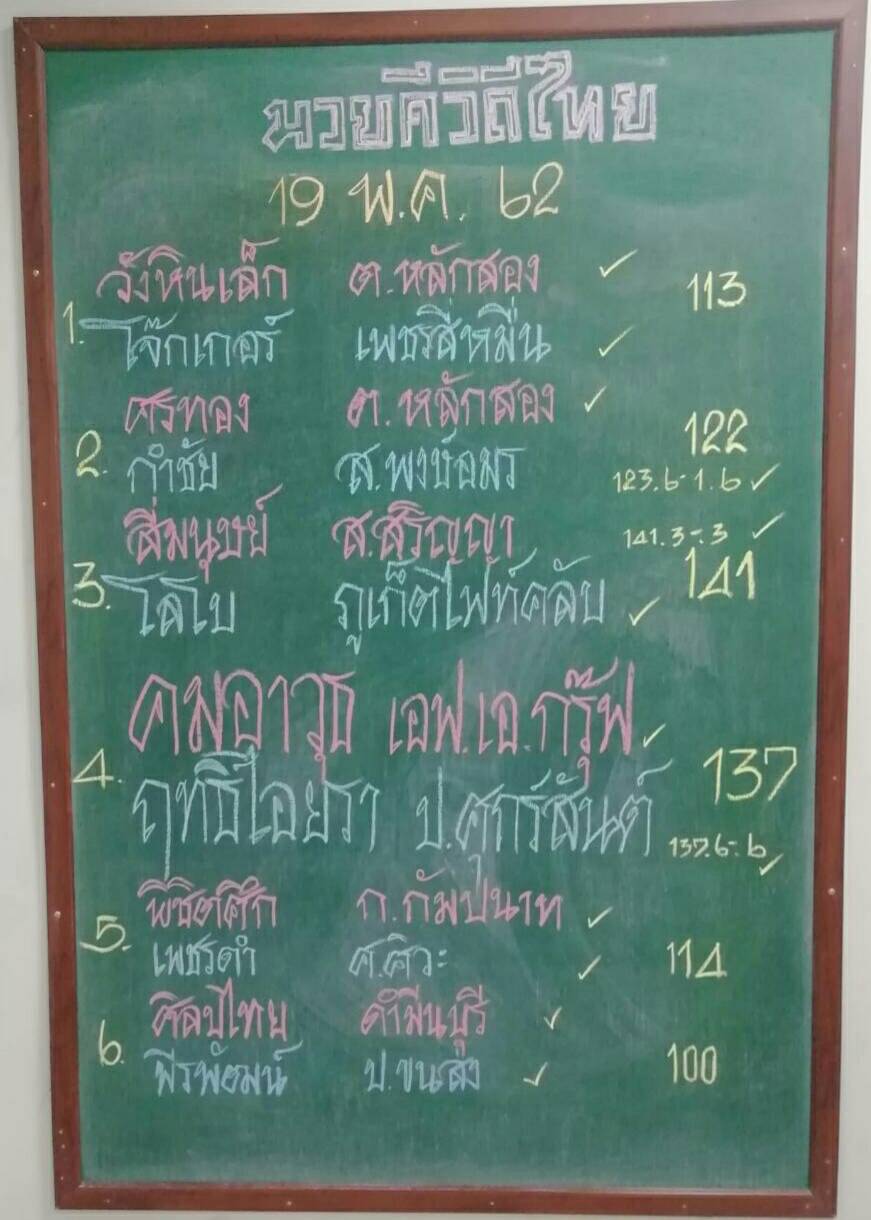 มวยดีวิถีไทย
19 พ.ค. 62
1. วังหินเล็ก ต.หลักสอง ✓ 113
โจ๊กเกอร์ เพชรสี่หมื่น ✓
2. ศรทอง ต.หลักสอง ✓ 122
กำชัย ส.พงษ์อมร 123.6-1.6 ✓
3. สี่มนุษย์ ส.สริญญา 141.3-.3 ✓ 141
โลโบ ภูเก็ตไฟท์คลับ ✓
4. คมอาวุธ เอฟ.เอ.กรุ๊ฟ ✓ 137
ฤทธิ์ไอยรา ป.ศุภร์สันต์ 137.6-.6 ✓
5. พิชิตศึก ก.กัมปนาท ✓ 114
เพชรดำ ศ.ศิวะ ✓
6. ศิลป์ไทย ดำมีนบุรี ✓ 100
พีรพัฒน์ ป.ขนส่ง ✓